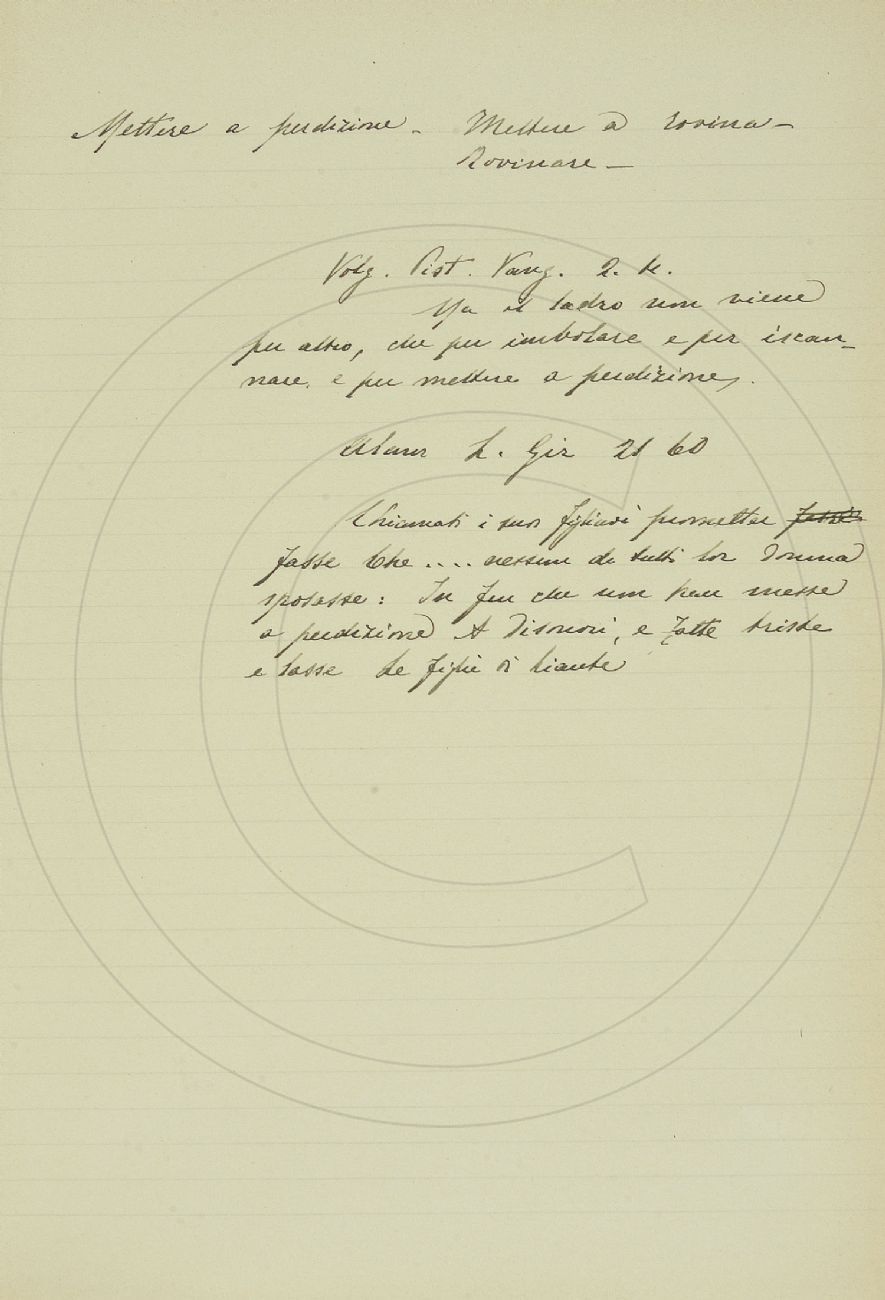 Mettere a perdizione - Mettere a rovina -
Rovinare -
Volg. Pist. Vang. 2.
Ma il ladro non viene
per altro, che per imbolare e per iscan-
nare, e per mettere a perdizione.
Alam L. Gir 21 60
Chiamati i suoi figliuoi prometter
fasse Che .... nessun di tutti lor donna
sposasse: In fin che non han messe
a perdizione A disonori, e fatte triste
e lasse Le figlie di